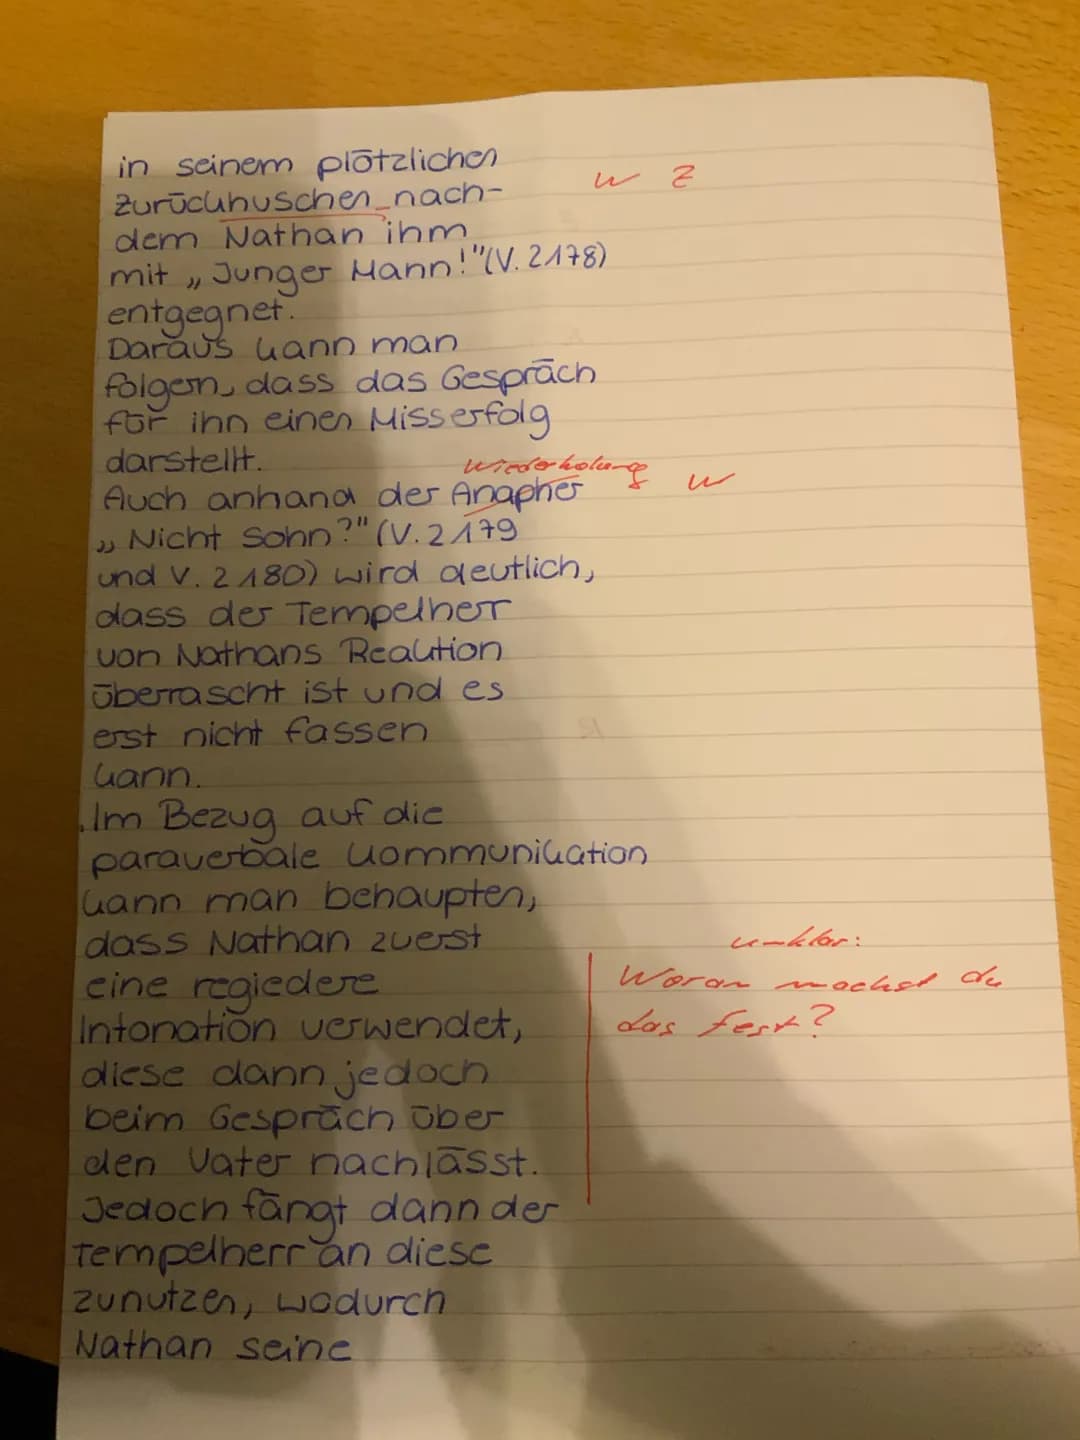 in seinem plötzlichen
zurückhuschen nach- W Z
dem Nathan ihm
mit „Junger Mann!"(V. 2178)
entgegnet.
Daraus kann man
folgern, dass das Gespräch
für ihn einen Misserfolg
darstellt.
Wiederholung
Auch anhand der Anapher W
„Nicht Sohn?" (V. 2179
und V. 2180) wird deutlich,
dass der Tempelherr
von Nathans Reaktion
überrascht ist und es
erst nicht fassen
kann.
Im Bezug auf die
paraverbale Kommunikation
kann man behaupten,
dass Nathan zuerst unklar:
eine regiedere Woran machst du
Intonation verwendet, das fest?
diese dann jedoch
beim Gespräch über
den Vater nachlässt.
Jedoch fängt dann der
Tempelherr an diese
zunutzen, wodurch
Nathan seine